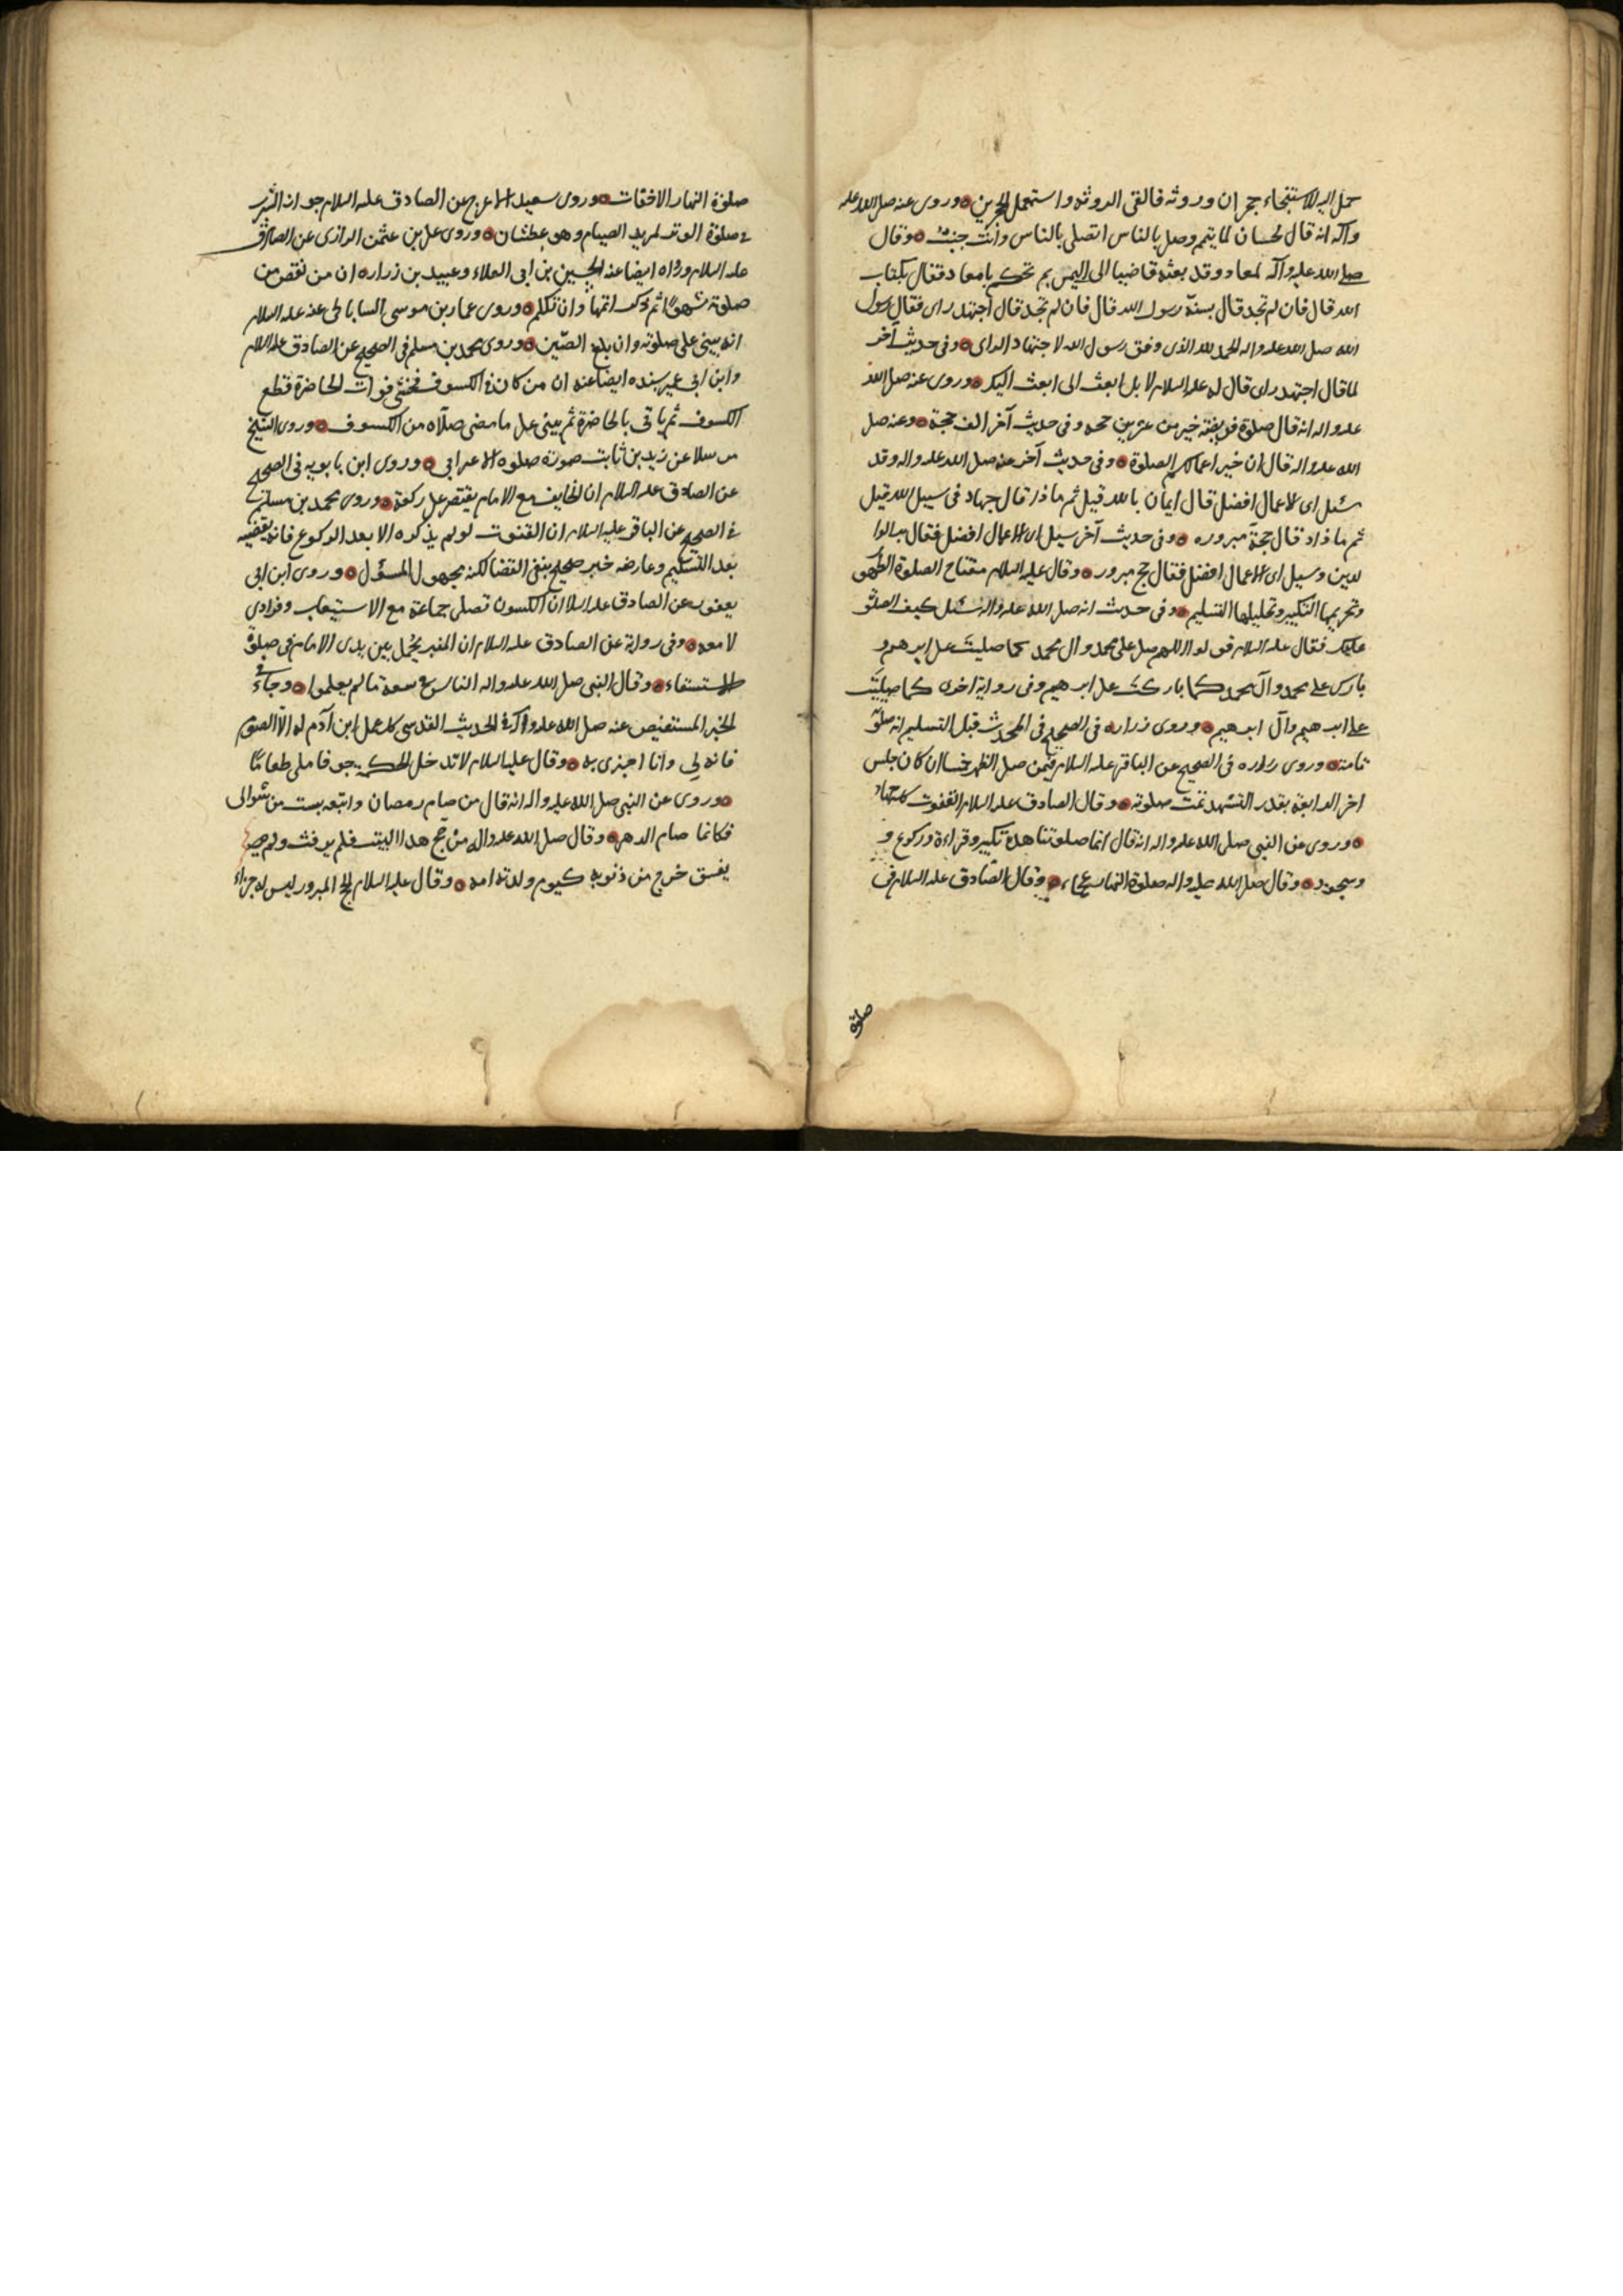 حمل اليه للاستنجاء حجران وروثه فالقى الروثه واستعمل الحجرين وروى عنه صلى الله عليه
وآله انه قال لحسان لما تيمم وصلى بالناس اتصلى بالناس وانت جنب وقال
صلى الله عليه وآله لمعاد وقد بعثه قاضيا الى اليمن بم تحكم يا معاد فقال بكتاب
الله قال فان لم تجد قال بسنة رسول الله قال فان لم تجد قال اجتهد راى فقال رسول
الله صلى الله عليه واله الحمد لله الذى وفق رسول الله لاجتهاد الراى وفى حديث آخر
لما قال اجتهد راى قال له عليه السلام لا بل ابعث الى ابعث اليك وروى عنه صلى الله
عليه واله انه قال صلوة فريضة خير من عشرين حجه وفى حديث آخر الف حجة وعنه صلى
الله عليه واله قال ان خير اعمالكم الصلوة وفى حديث آخر عنه صلى الله عليه واله وقد
سئل اى الاعمال افضل قال ايمان بالله قيل ثم ماذا قال جهاد فى سبيل الله قيل
ثم ماذا قال حجة مبروره وفى حديث آخر سيل اى الاعمال افضل فقال بر الوا
لدين وسيل اى الاعمال افضل فقال حج مبرور وقال عليه السلام مفتاح الصلوة الطهو
وتحريمها التكبير وتحليلها التسليم وفى حديث انه صلى الله عليه واله سئل كيف الصلوة
عليك فقال عليه السلام قولوا اللهم صل على محمد وال محمد كما صليت على ابرهيم و
بارك على محمد وآل محمد كما باركت على ابرهيم وفى رواية اخرى كما صليت
على ابرهيم وآل ابرهيم وروى زراره فى الصحيح فى المحدث قبل التسليم انه صلوته
تامة وروى زراره فى الصحيح عن الباقر عليه السلام فيمن صلى الظهر خمسا ان كان جلس
اخر الرابعة بقدر التشهد تمت صلوته وقال الصادق عليه السلام القنوت كله جهار
وروى عن النبى صلى الله عليه واله انه قال انما صلوتنا هذه تكبير وقراءة وركوع و
وسجود وقال صلى الله عليه واله صلوة النهار عجماء وقال الصادق عليه السلام فى
صلوة
صلوة النهار الاخفات وروى سعيد الاعرج عن الصادق عليه السلام جواز الشرب
فى صلوة الوتر لمريد الصيام وهو عطشان وروى على بن عثمن الرازى عن الصادق
عليه السلام ورواه ايضا عنه الحسين بن ابى العلاء وعبيد بن زراره ان من نقص من
صلوته سهوا ثم ذكر اتمها وان تكلم وروى عمار بن موسى الساباطى عنه عليه السلام
انه يبنى على صلوته وان بلغ الصّين وروى محمد بن مسلم فى الصحيح عن الصادق عليه السلام
وابن ابى عمير بسنده ايضا عنه ان من كان فى الكسوف فخشى فوات الحاضرة قطع
الكسوف ثم ياتى بالحاضرة ثم يبنى على ما مضى صلاه من الكسوف وروى الشيخ
مرسلا عن زيد بن ثابت صورة صلوه الاعرابى وروى ابن بابويه فى الصحيح
عن الصادق عليه السلام ان الخايف مع الامام يقتصر على ركعة وروى محمد بن مسلم
فى الصحيح عن الباقر عليه السلام ان القنوت لو لم يذكره الا بعد الركوع فانه يقضيه
بعد التسليم وعارضه خبر صحيح بنفى القضا لكنه مجهول المسؤل وروى ابن ابى
يعفور عن الصادق عليه السلام ان الكسوف تصلى جماعة مع الاستيعاب وفرادى
لا معه وفى رواية عن الصادق عليه السلام ان المنبر يحمل بين يدى الامام فى صلوة
الاستسقاء وقال النبى صلى الله عليه واله الناس فى سعة ما لم يعلموا وجاء فى
الخبر المستفيض عنه صلى الله عليه وآله فى الحديث القدسى كل عمل ابن آدم له الا الصوم
فانه لى وانا اجزى به وقال عليه السلام لا تدخل الحكمة جوفا ملى طعاما
وروى عن النبى صلى الله عليه واله انه قال من صام رمضان واتبعه بست من شوال
فكانما صام الدهر وقال صلى الله عليه واله من حج هذا البيت فلم يرفث ولم
يفسق خرج من ذنوبه كيوم ولدته امه وقال عليه السلام الحج المبرور ليس له جزاء